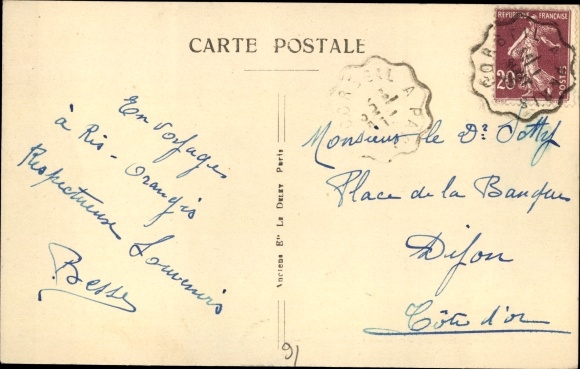 CARTE POSTALE
RÉPUBLIQUE FRANÇAISE
20
POSTES
CORBEIL A PA
En voyage
à Ris-Orangis
Respectueux Souvenirs
Besse
Anciens Etts Le Deley Paris
Monsieur le Dr
Place de la Banque
Dijon
Côte d'or
91